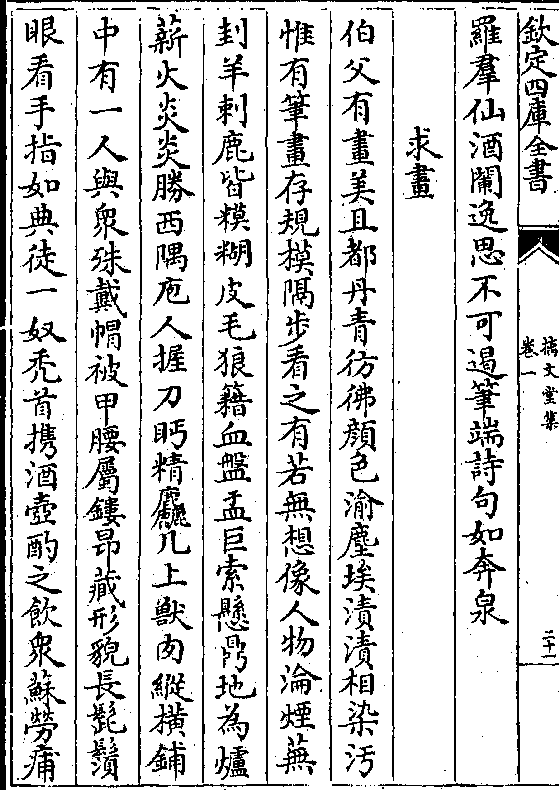 欽定四庫全書
摛文堂集
卷一
二十一
羅羣仙酒闌逸思不可遏筆端詩句如奔泉
求畫
伯父有畫美且都丹青彷彿顔色渝塵埃漬漬相染汚
惟有筆畫存規模隔步看之有若無想像人物淪煙蕪
刲羊刺鹿皆糢糊皮毛狼籍血盤盂巨索懸鼎地為爐
薪火炎炎勝西隅庖人握刀眄精麤几上獸肉縱橫鋪
中有一人與衆殊戴帽被甲腰屬鏤昂藏形貌長髭鬚
眼看手指如典徒一奴禿首携酒壺酌之飲衆蘇勞痡